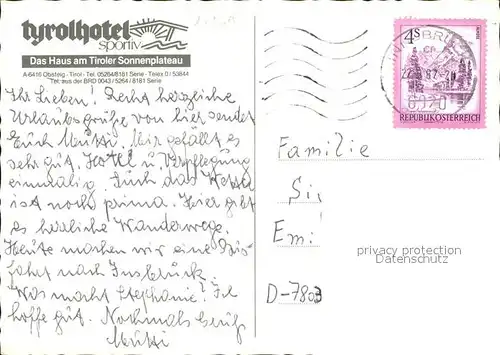 tyrolhotel
sportiv
Das Haus am Tiroler Sonnenplateau
A-6416 Obsteig · Tirol · Tel. 05264/8181 Serie · Telex 0 / 53844
Tel. aus der BRD 0043 / 5264 / 8181 Serie
Ihr Lieben! Recht herzliche
Urlaubsgrüße von hier sendet
Euch Mutti. Mir gefällt es
sehr gut. Hotel u. Verpflegung
einmalig. Auch das Wetter
ist noch prima. Hier gibt
es herrliche Wanderwege.
Heute machen wir eine
fahrt nach Innsbruck.
Was macht Stephanie? Ich
hoffe gut. Nochmals
Mutti
4S
REPUBLIK ÖSTERREICH
INNSBRUCK
6020
Familie
Si
Em
privacy protection
Datenschutz
D-7803